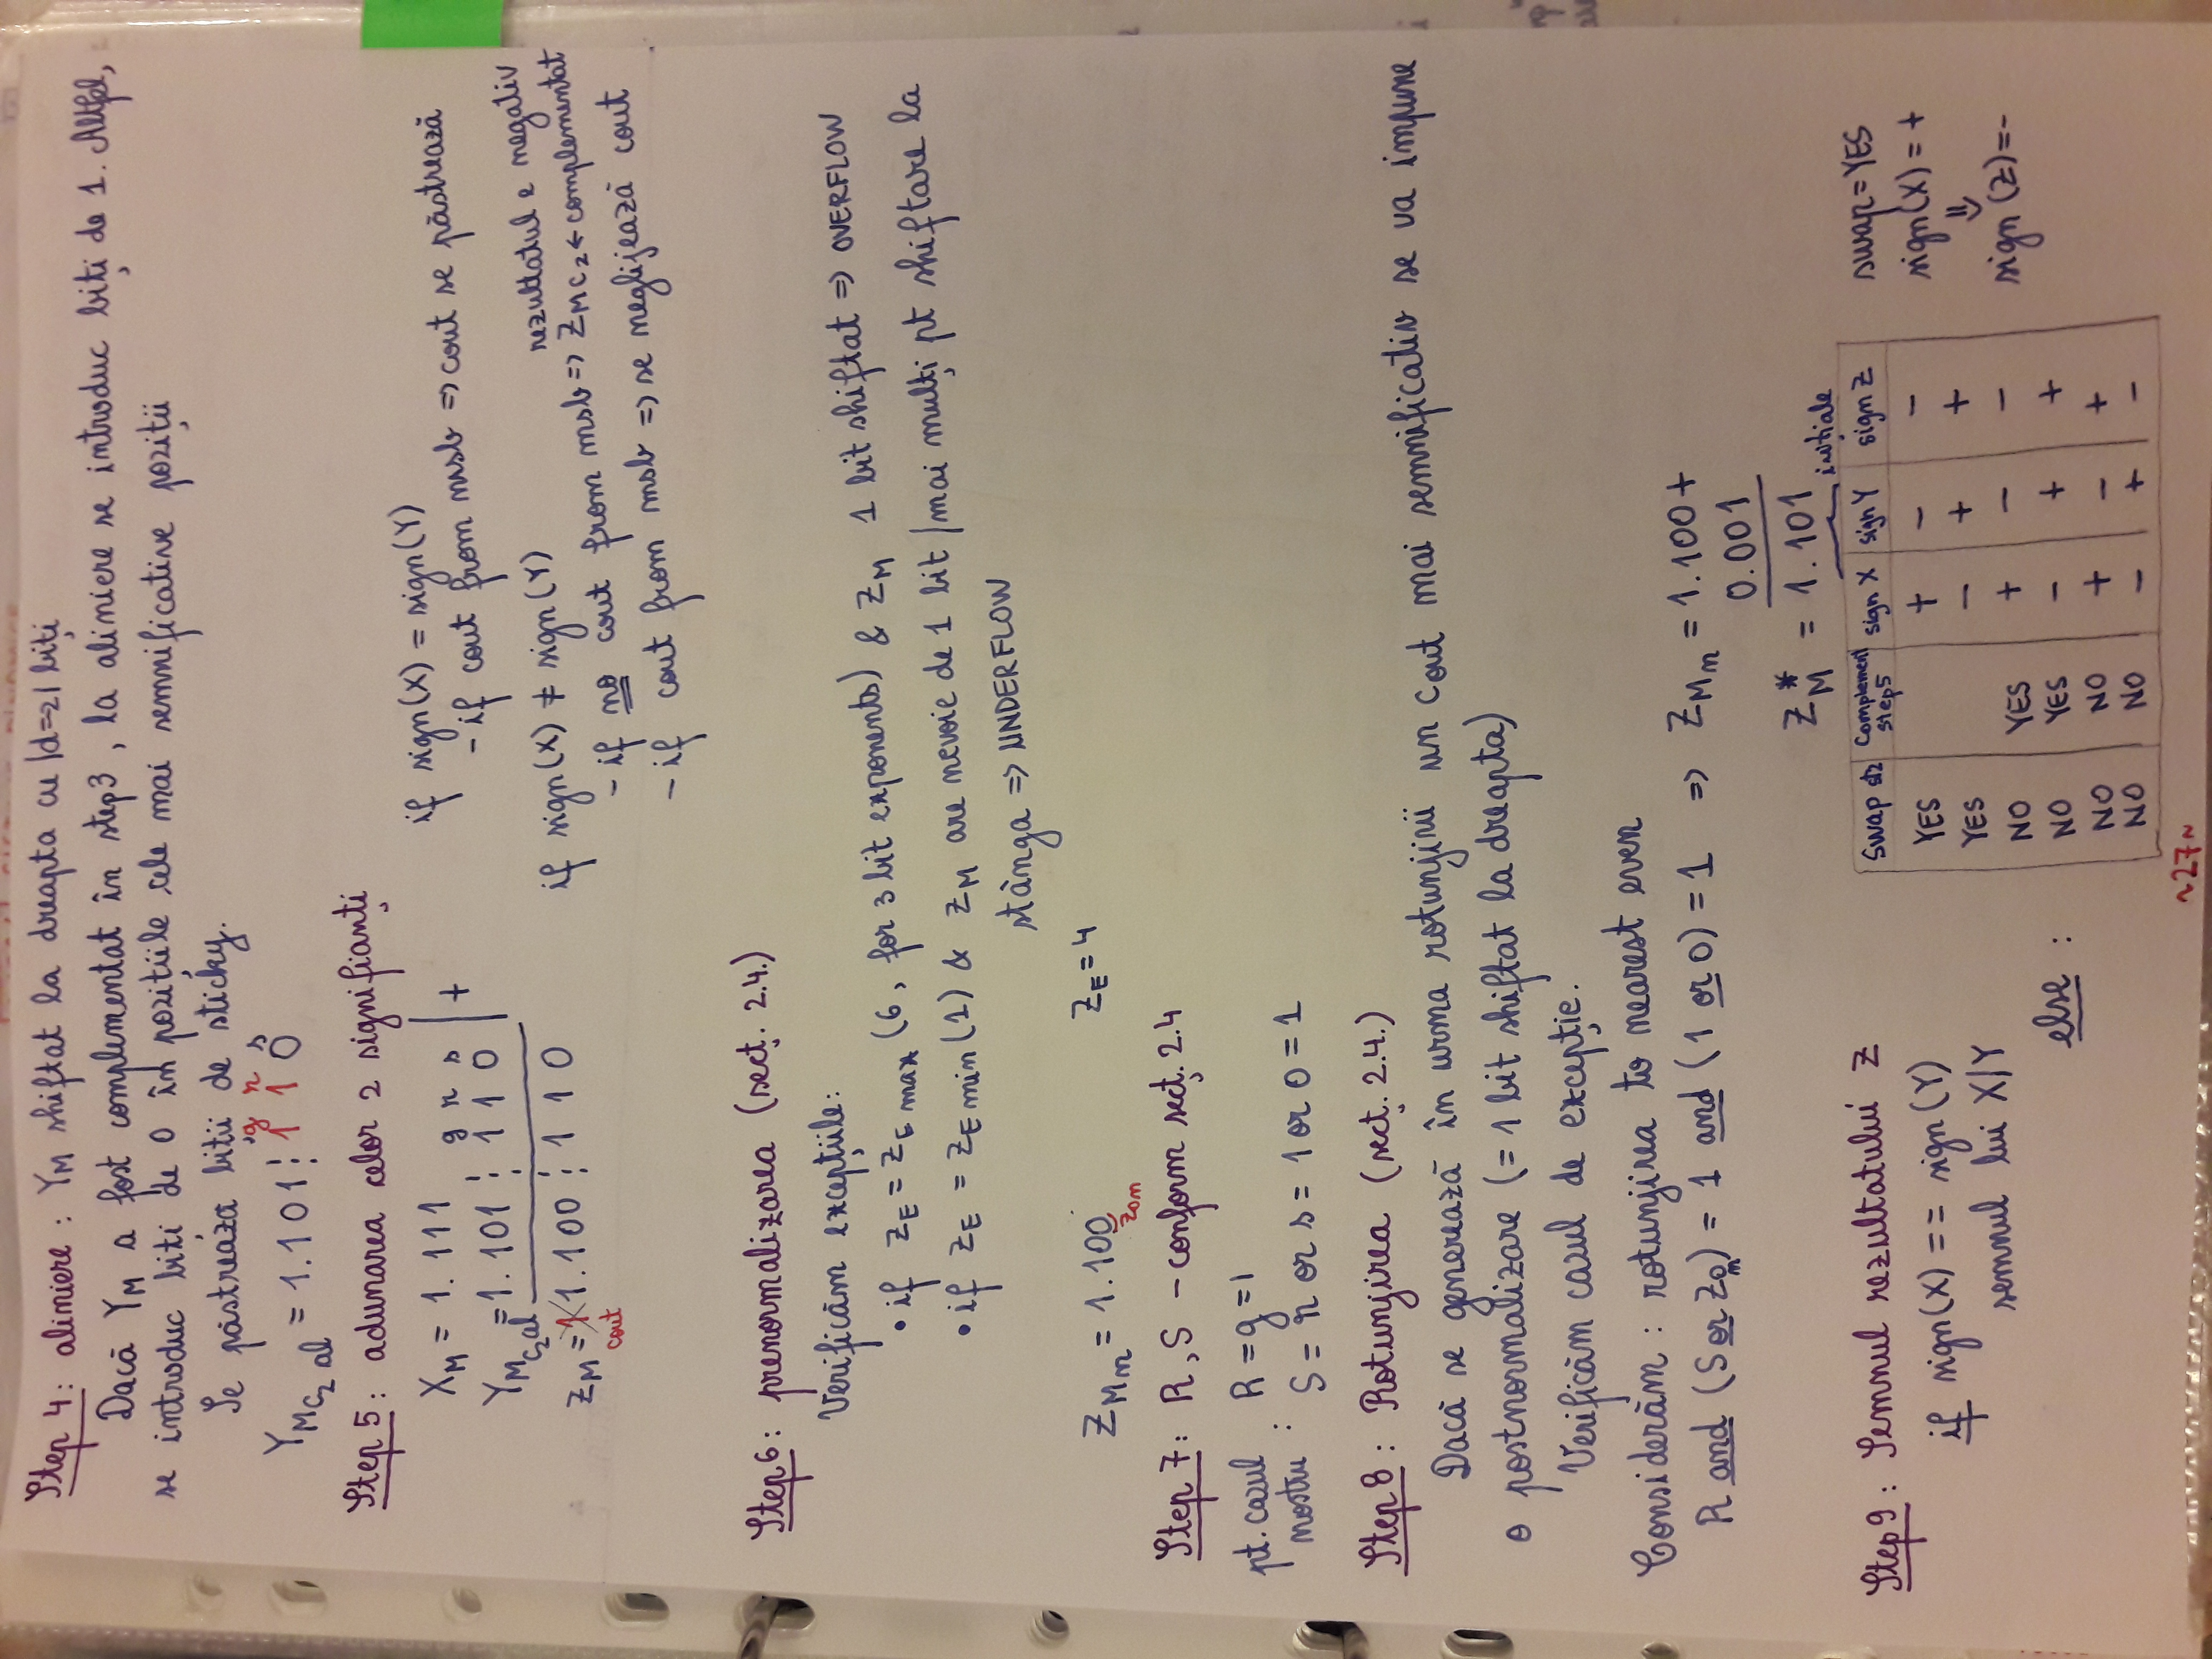 Step 4: aliniere: YM shiftat la dreapta cu |d=2| biți
Dacă YM a fost complementat în step3, la aliniere se introduc biți de 1. Altfel,
se introduc biți de 0 în pozițiile cele mai semnificative poziții
Se păstrează biții de sticky.
g r s
YMC2 al = 1.101⋮1 1 0
Step 5: adunarea celor 2 signifianți
XM = 1.111
g r s
YMC2al = 1.101⋮1 1 0 | +
ZM = 1 1.100⋮1 1 0
cout
if sign(X) = sign(Y)
- if cout from msb => cout se păstrează
if sign(X) ≠ sign(Y)
rezultatul e negativ
- if no cout from msb => ZMC2 ← complementat
- if cout from msb => se neglijează cout
Step 6: prenormalizarea (secț. 2.4.)
Verificăm excepțiile:
• if ZE = ZE max (6, for 3 bit exponents) & ZM 1 bit shiftat => OVERFLOW
• if ZE = ZE min (1) & ZM are nevoie de 1 bit / mai mulți pt shiftare la
stânga => UNDERFLOW
ZMn = 1.100 ZE = 4
Z0n
Step 7: R, S - conform secț. 2.4
pt. cazul nostru :
R = g = 1
S = r or s = 1 or 0 = 1
Step 8: Rotunjirea (secț. 2.4.)
Dacă se generează în urma rotunjirii un cout mai semnificativ se va impune
o postnormalizare (= 1 bit shiftat la dreapta)
Verificăm cazul de excepție.
Considerăm: rotunjirea to nearest even
R and (S or Z0n) = 1 and (1 or 0) = 1 => ZMn = 1.100 +
0.001
ZM* = 1.101
Step 9: Semnul rezultatului Z
if sign(X) == sign(Y)
semnul lui X/Y
else :
inițiale
Swap st2 Complement step5 sign X sign Y sign Z
YES + - -
YES - + +
NO YES + - -
NO YES - + +
NO NO + - +
NO NO - + -
swap = YES
sign(X) = +
⇓
sign(Z) = -
~27~